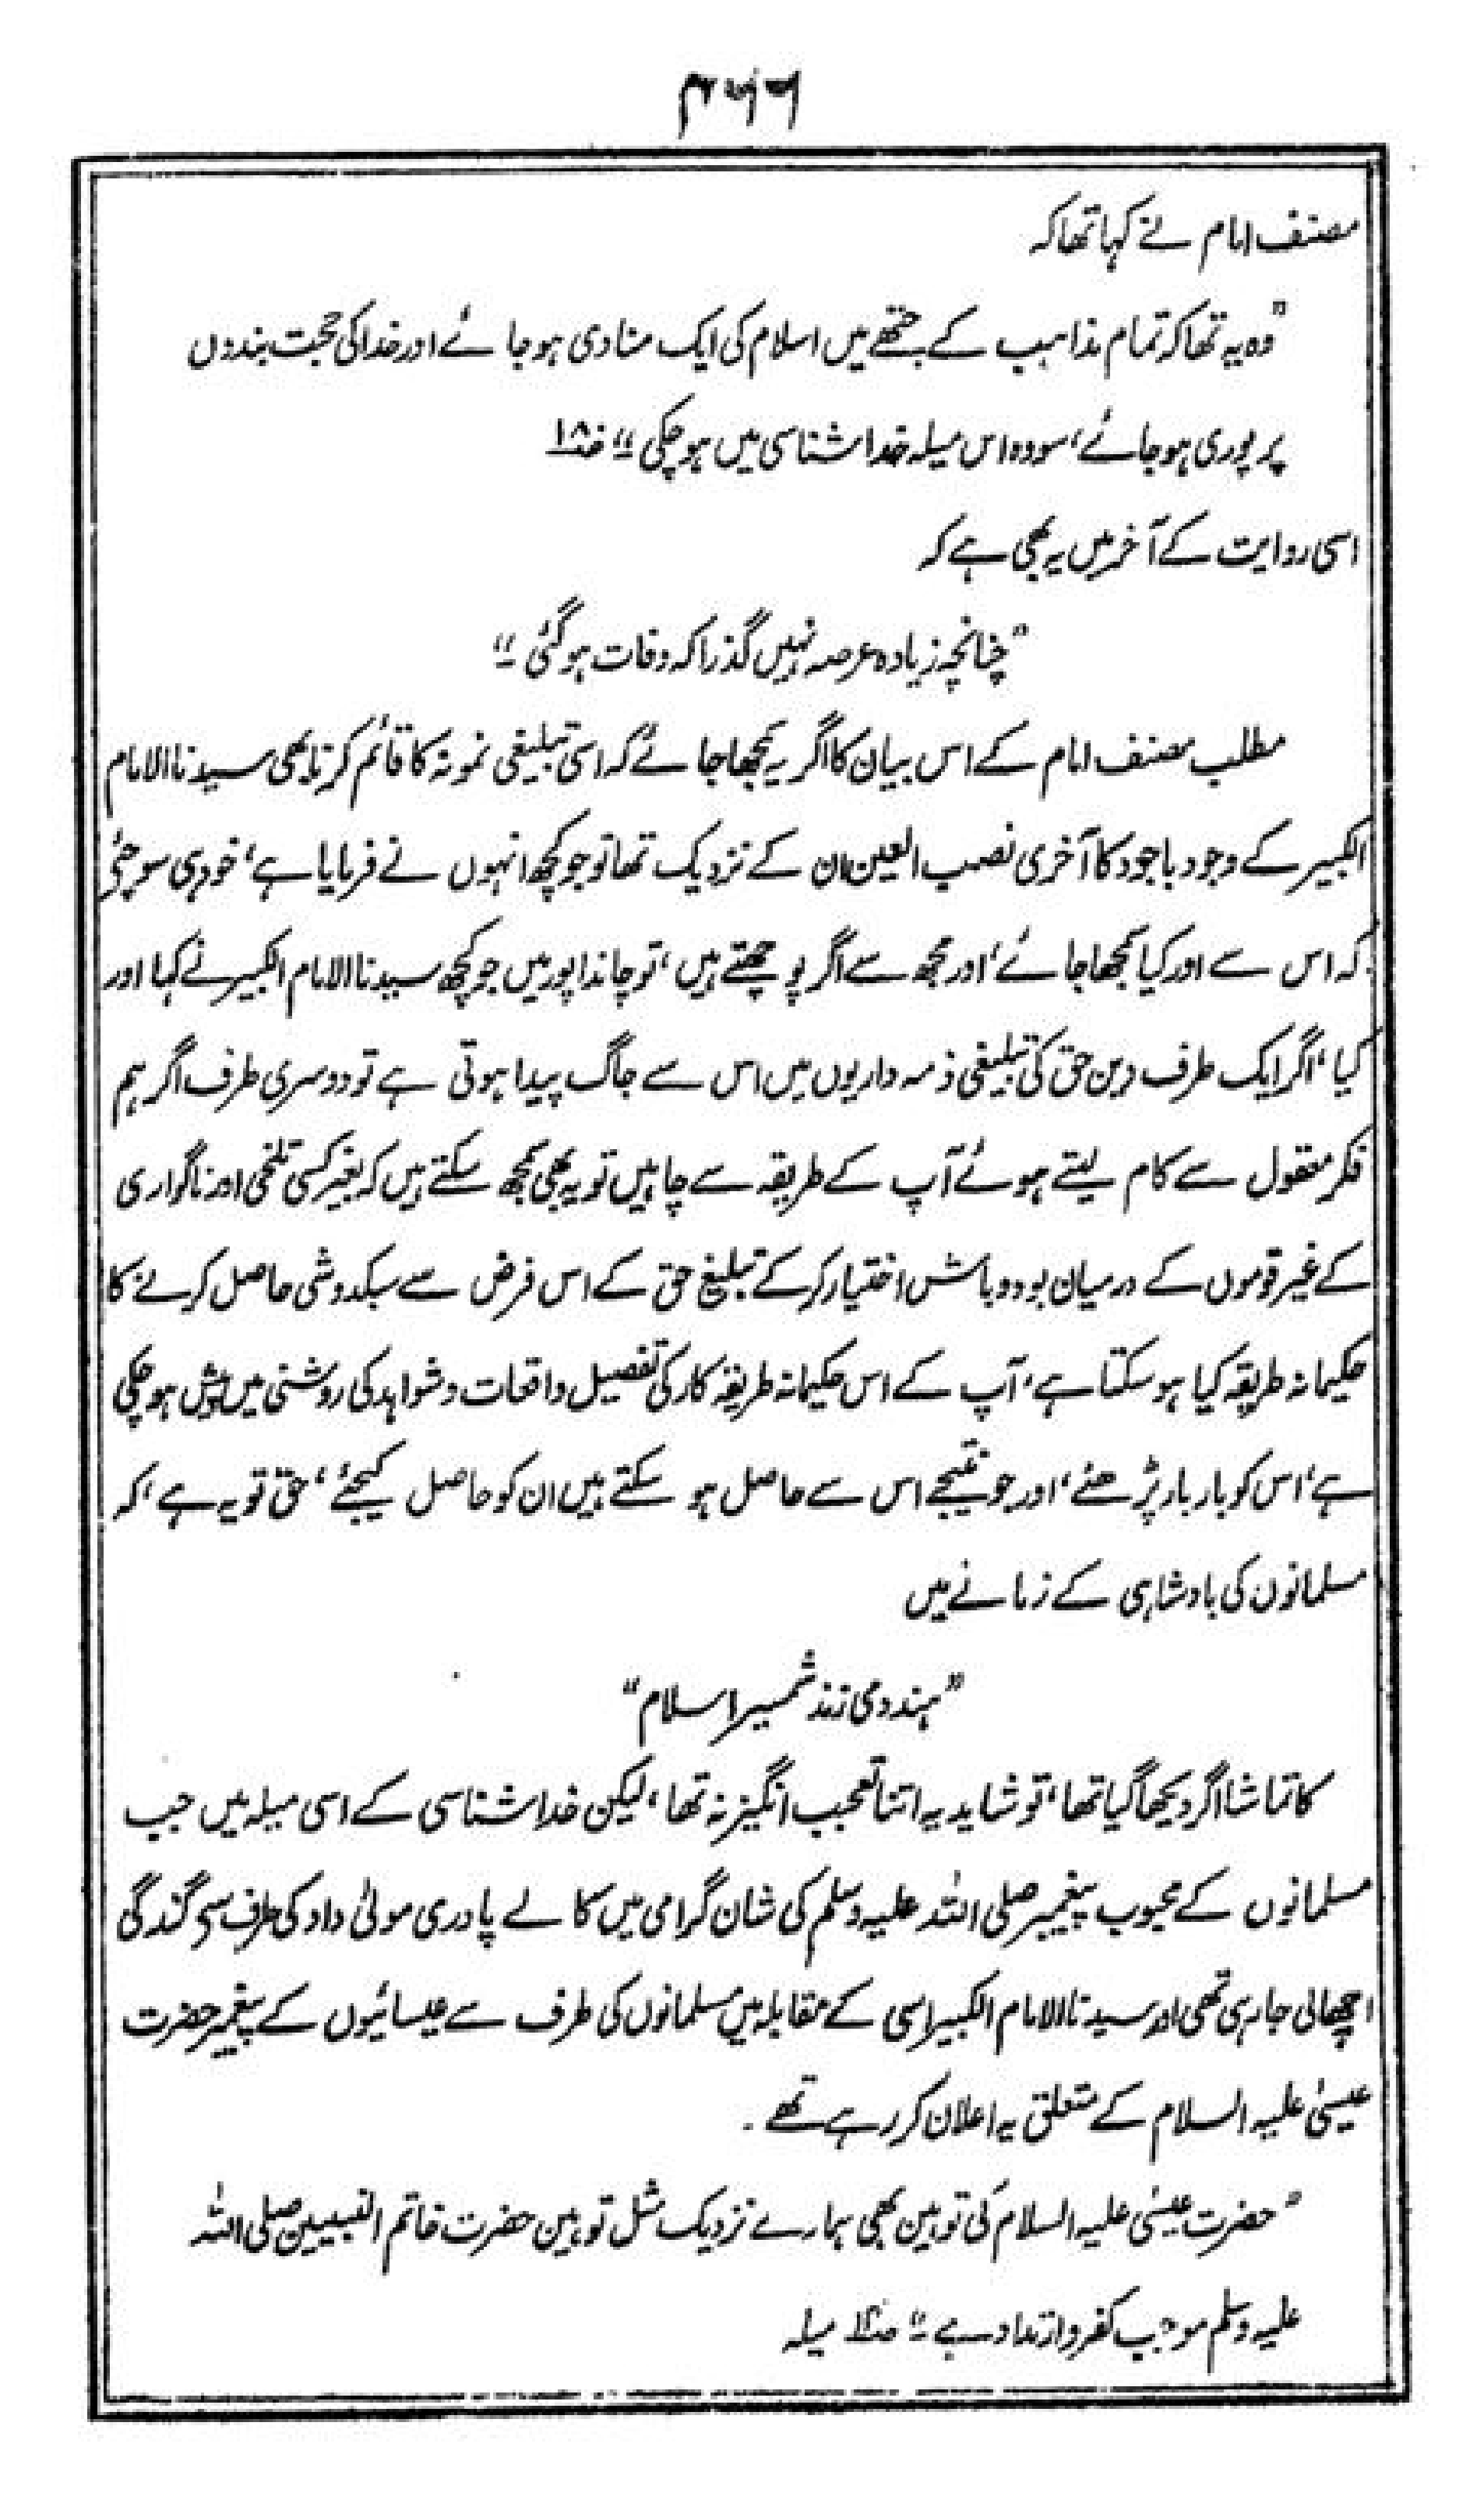 ۴۶۶
مصنف امام نے کہا تھا کہ
”وہ یہ تھا کہ تمام مذاہب کے جتھے میں اسلام کی ایک منادی ہو جائے اور خدا کی حجت بندوں
پر پوری ہو جائے، سو وہ اس میلہ خدا شناسی میں ہو چکی“
اسی روایت کے آخر میں یہ بھی ہے کہ
”چنانچہ زیادہ عرصہ نہیں گذرا کہ وفات ہو گئی“
مطلب مصنف امام کے اس بیان کا اگر یہ سمجھا جائے کہ اسی تبلیغی نمونہ کا قائم کرنا بھی سیدنا الامام
الکبیر کے وجود باجود کا آخری نصب العین ان کے نزدیک تھا تو جو کچھ انہوں نے فرمایا ہے، خود ہی سوچئے
کہ اس سے اور کیا سمجھا جائے، اور مجھ سے اگر پوچھتے ہیں، تو چاندا پور میں جو کچھ سیدنا الامام الکبیر نے کہا اور
کیا، اگر ایک طرف دین حق کی تبلیغی ذمہ داریوں میں اس سے جاگ پیدا ہوتی ہے تو دوسری طرف اگر ہم
فکر معقول سے کام لیتے ہوئے آپ کے طریقہ سے چاہیں تو یہ بھی سمجھ سکتے ہیں کہ بغیر کسی تلخی اور ناگواری
کے غیر قوموں کے درمیان بود و باش اختیار کر کے تبلیغ حق کے اس فرض سے سبکدوشی حاصل کرنے کا
حکیمانہ طریقہ کیا ہو سکتا ہے، آپ کے اس حکیمانہ طریقہ کار کی تفصیل واقعات و شواہد کی روشنی میں پیش ہو چکی
ہے، اس کو بار بار پڑھئے، اور جو نتیجے اس سے حاصل ہو سکتے ہیں ان کو حاصل کیجئے، حق تو یہ ہے، کہ
مسلمانوں کی بادشاہی کے زمانے میں
”ہندو می زند شمشیر اسلام“
کا تماشا اگر دیکھا گیا تھا، تو شاید یہ اتنا تعجب انگیز نہ تھا، لیکن خدا شناسی کے اسی میلہ میں جب
مسلمانوں کے محبوب پیغمبر صلی اللہ علیہ وسلم کی شان گرامی میں کالے پادری مولیٰ داد کی طرف سے گندگی
اچھالی جا رہی تھی اور سیدنا الامام الکبیر اسی کے مقابلہ میں مسلمانوں کی طرف سے عیسائیوں کے پیغمبر حضرت
عیسیٰ علیہ السلام کے متعلق یہ اعلان کر رہے تھے ۔
”حضرت عیسیٰ علیہ السلام کی توہین بھی ہمارے نزدیک مثل توہین حضرت خاتم النبیین صلی اللہ
علیہ وسلم موجب کفر و ارتداد ہے“ میلہ